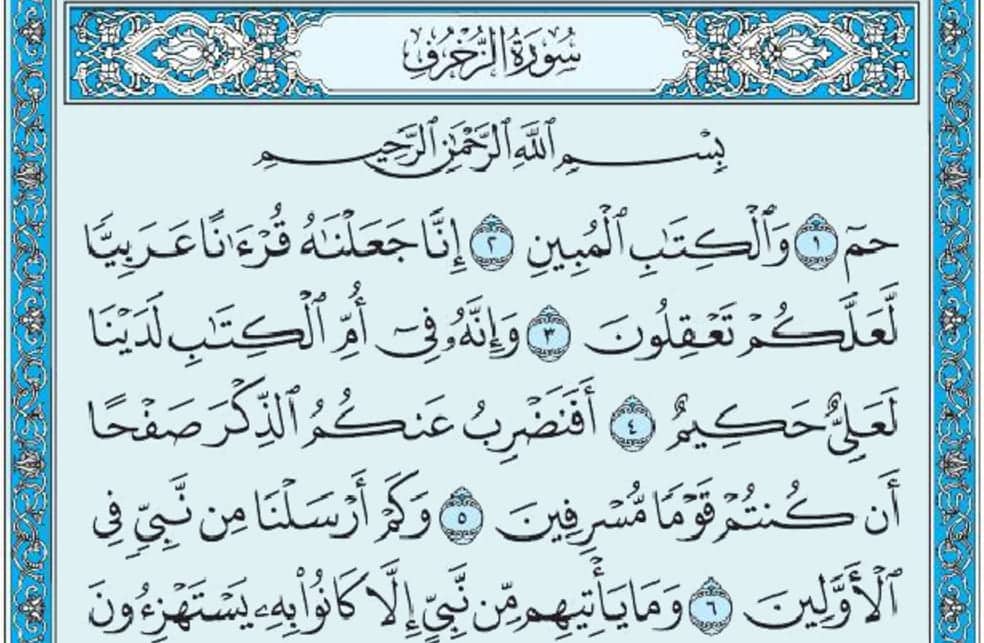 سُورَةُ الزُّخْرُفِ
بِسْمِ ٱللَّهِ ٱلرَّحْمَٰنِ ٱلرَّحِيمِ
حمٓ ١ وَٱلْكِتَٰبِ ٱلْمُبِينِ ٢ إِنَّا جَعَلْنَٰهُ قُرْءَٰنًا عَرَبِيًّا
لَّعَلَّكُمْ تَعْقِلُونَ ٣ وَإِنَّهُۥ فِىٓ أُمِّ ٱلْكِتَٰبِ لَدَيْنَا
لَعَلِىٌّ حَكِيمٌ ٤ أَفَنَضْرِبُ عَنكُمُ ٱلذِّكْرَ صَفْحًا
أَن كُنتُمْ قَوْمًا مُّسْرِفِينَ ٥ وَكَمْ أَرْسَلْنَا مِن نَّبِىٍّ فِى
ٱلْأَوَّلِينَ ٦ وَمَا يَأْتِيهِم مِّن نَّبِىٍّ إِلَّا كَانُوا۟ بِهِۦ يَسْتَهْزِءُونَ